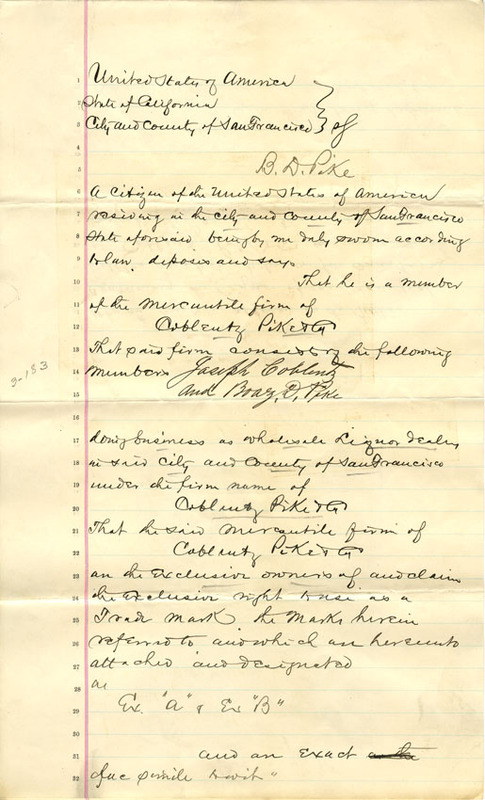 1 United States of America
2 State of California
3 City and County of San Francisco } ss
4
5 B. D. Pike
6 A Citizen of the United States of America
7 residing in the City and County of San Francisco
8 State aforesaid being by me duly sworn according
9 to law, deposes and says
10 That he is a member
11 of the Mercantile firm of
12 Coblentz Pike & Co
13 That said firm consists of the following
14 Members Joseph Coblentz
15 and Boaz D. Pike
16
17 doing business as wholesale Liquor dealers
18 in said City and County of San Francisco
19 under the firm name of
20 Coblentz Pike & Co
21 That the said Mercantile firm of
22 Coblentz Pike & Co
23 are the Exclusive owners of, and claim
24 the Exclusive right to use as a
25 Trade Mark, the Marks herein
26 referred to and which are hereunto
27 attached and designated
28 as
29 Ex. "A" & Ex "B"
30
31 and an exact
32 fac simile to wit "
3-183